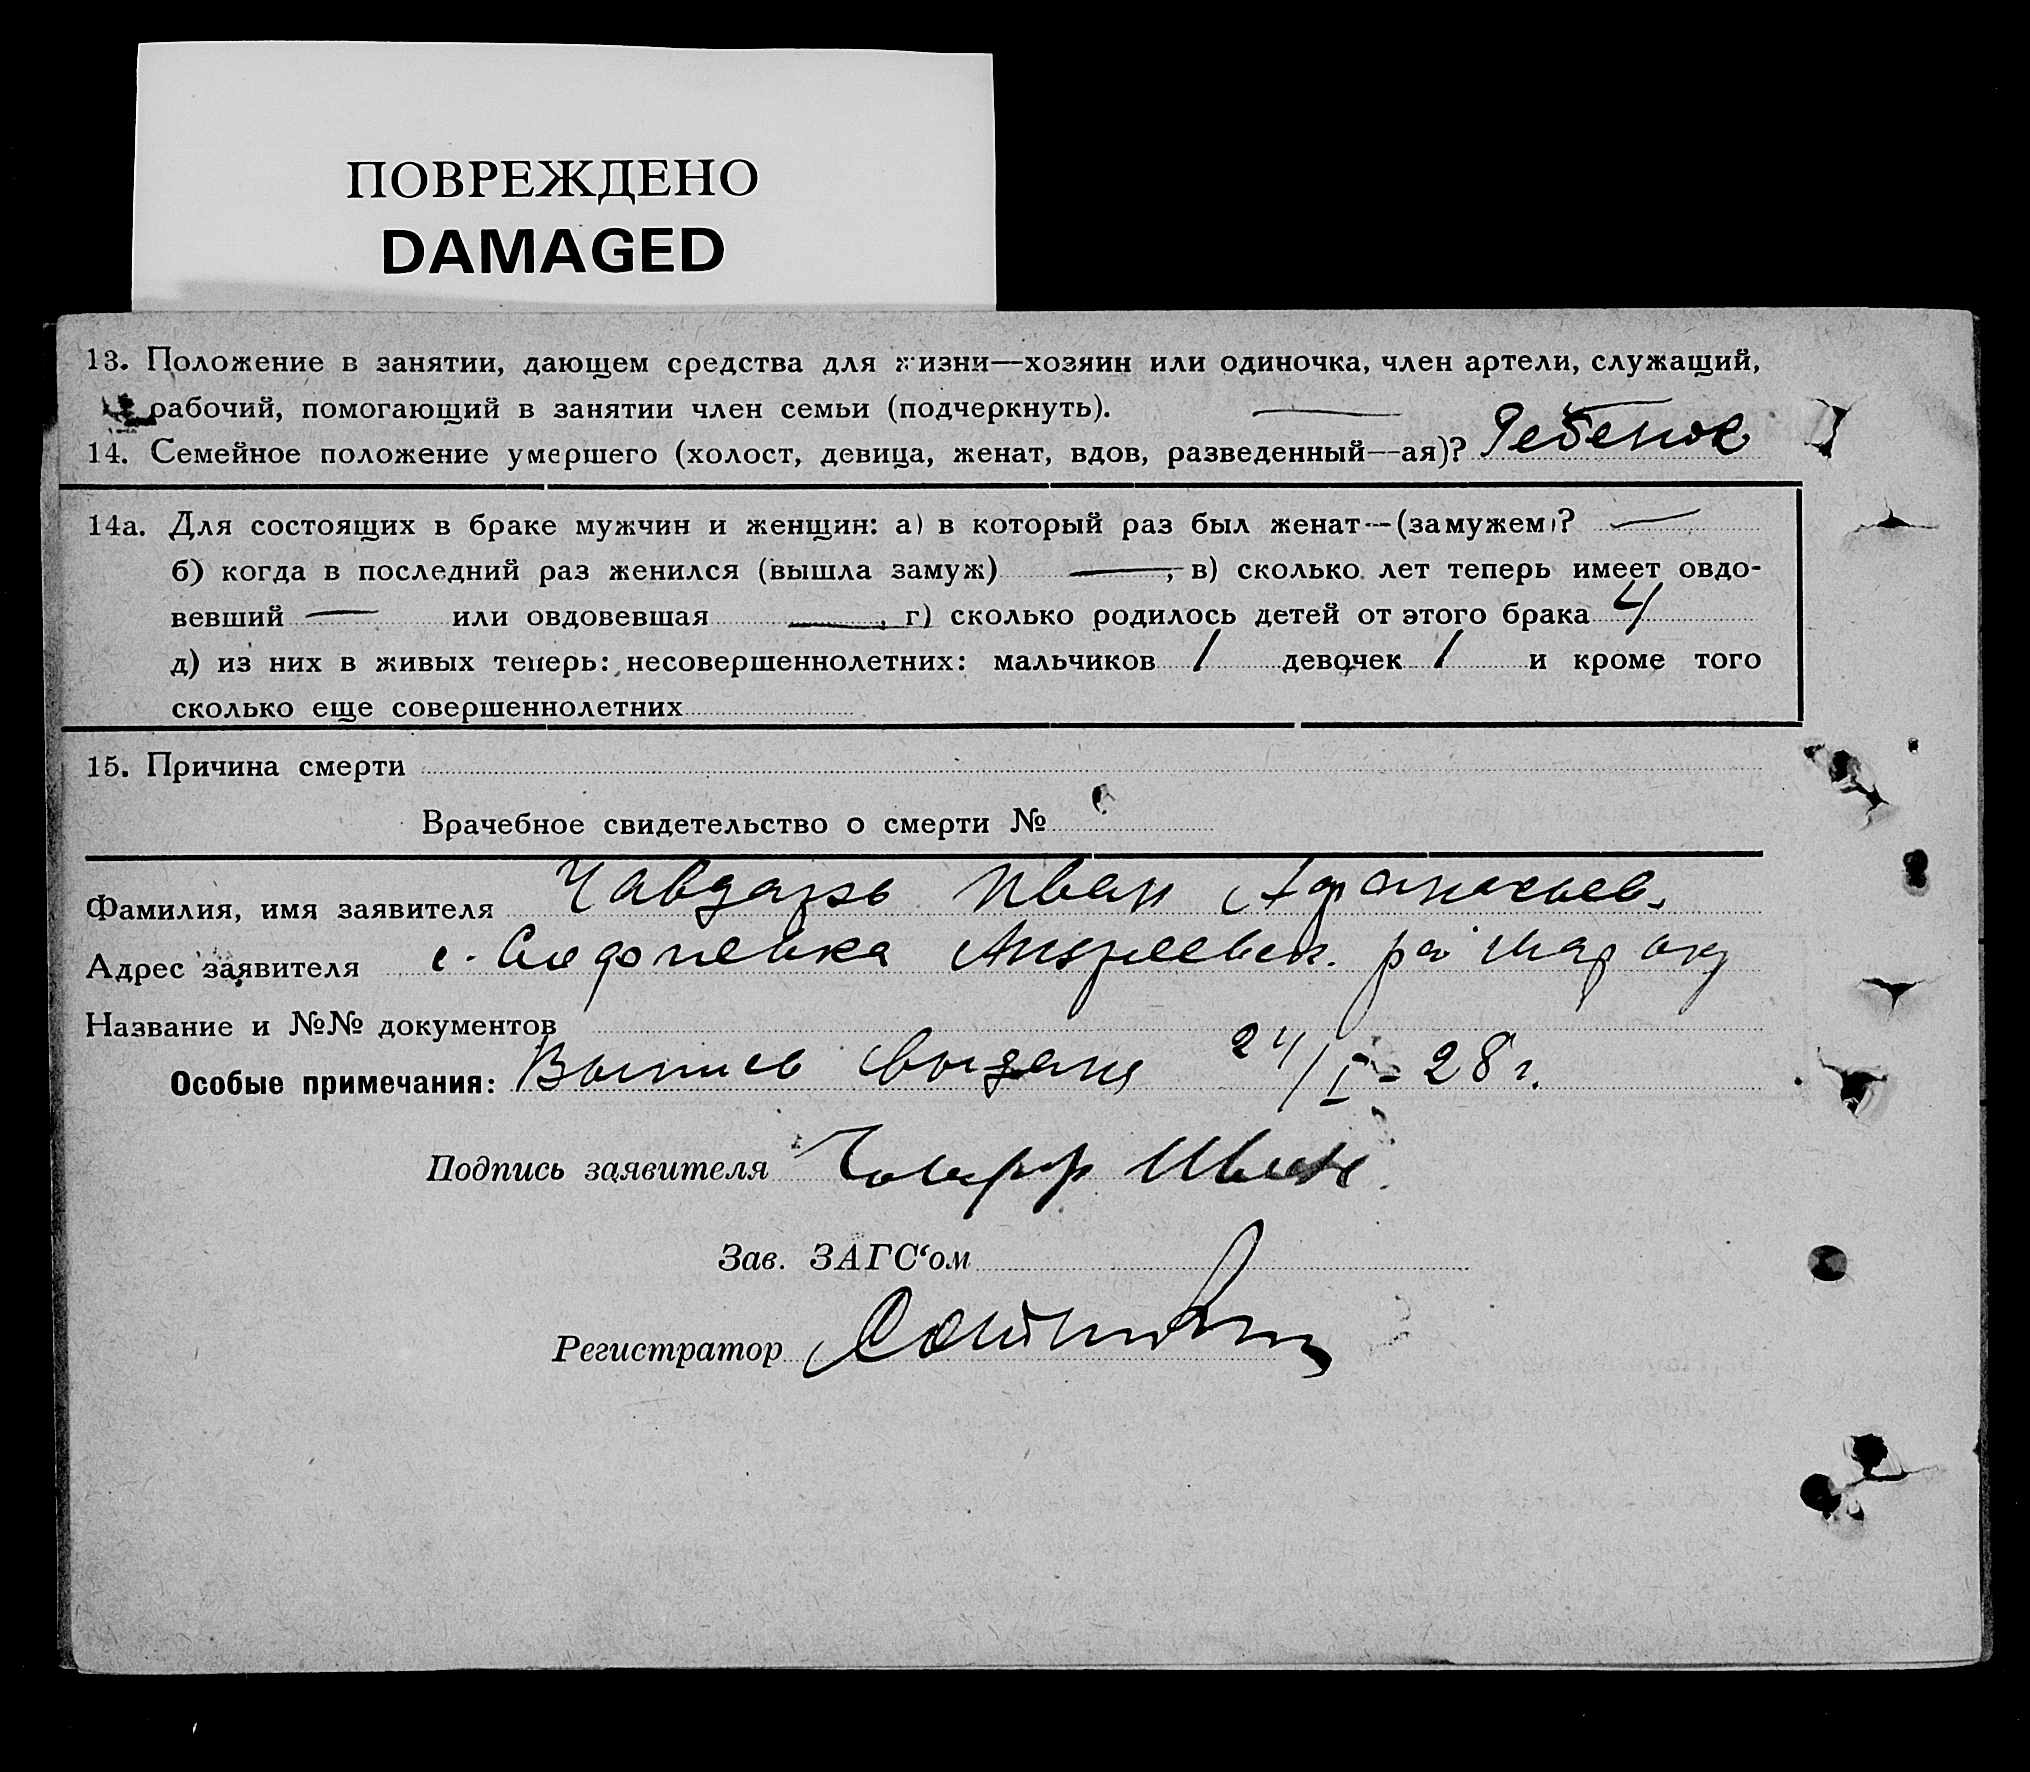 ПОВРЕЖДЕНО
DAMAGED
13. Положение в занятии, дающем средства для жизни—хозяин или одиночка, член артели, служащий,
рабочий, помогающий в занятии член семьи (подчеркнуть). —
14. Семейное положение умершего (холост, девица, женат, вдов, разведенный—ая)? Ребенок
14а. Для состоящих в браке мужчин и женщин: а) в который раз был женат—(замужем)? —
б) когда в последний раз женился (вышла замуж) —, в) сколько лет теперь имеет овдо-
вевший — или овдовевшая —, г) сколько родилось детей от этого брака 4
д) из них в живых теперь: несовершеннолетних: мальчиков 1 девочек 1 и кроме того
сколько еще совершеннолетних
15. Причина смерти
Врачебное свидетельство о смерти №
Фамилия, имя заявителя Чавдарь Иван Афанасьев.
Адрес заявителя с. Андреевск. мар окр
Название и №№ документов
Особые примечания: Выпись выдана 24/I-28 г.
Подпись заявителя Иван
Зав. ЗАГС‘ом
Регистратор